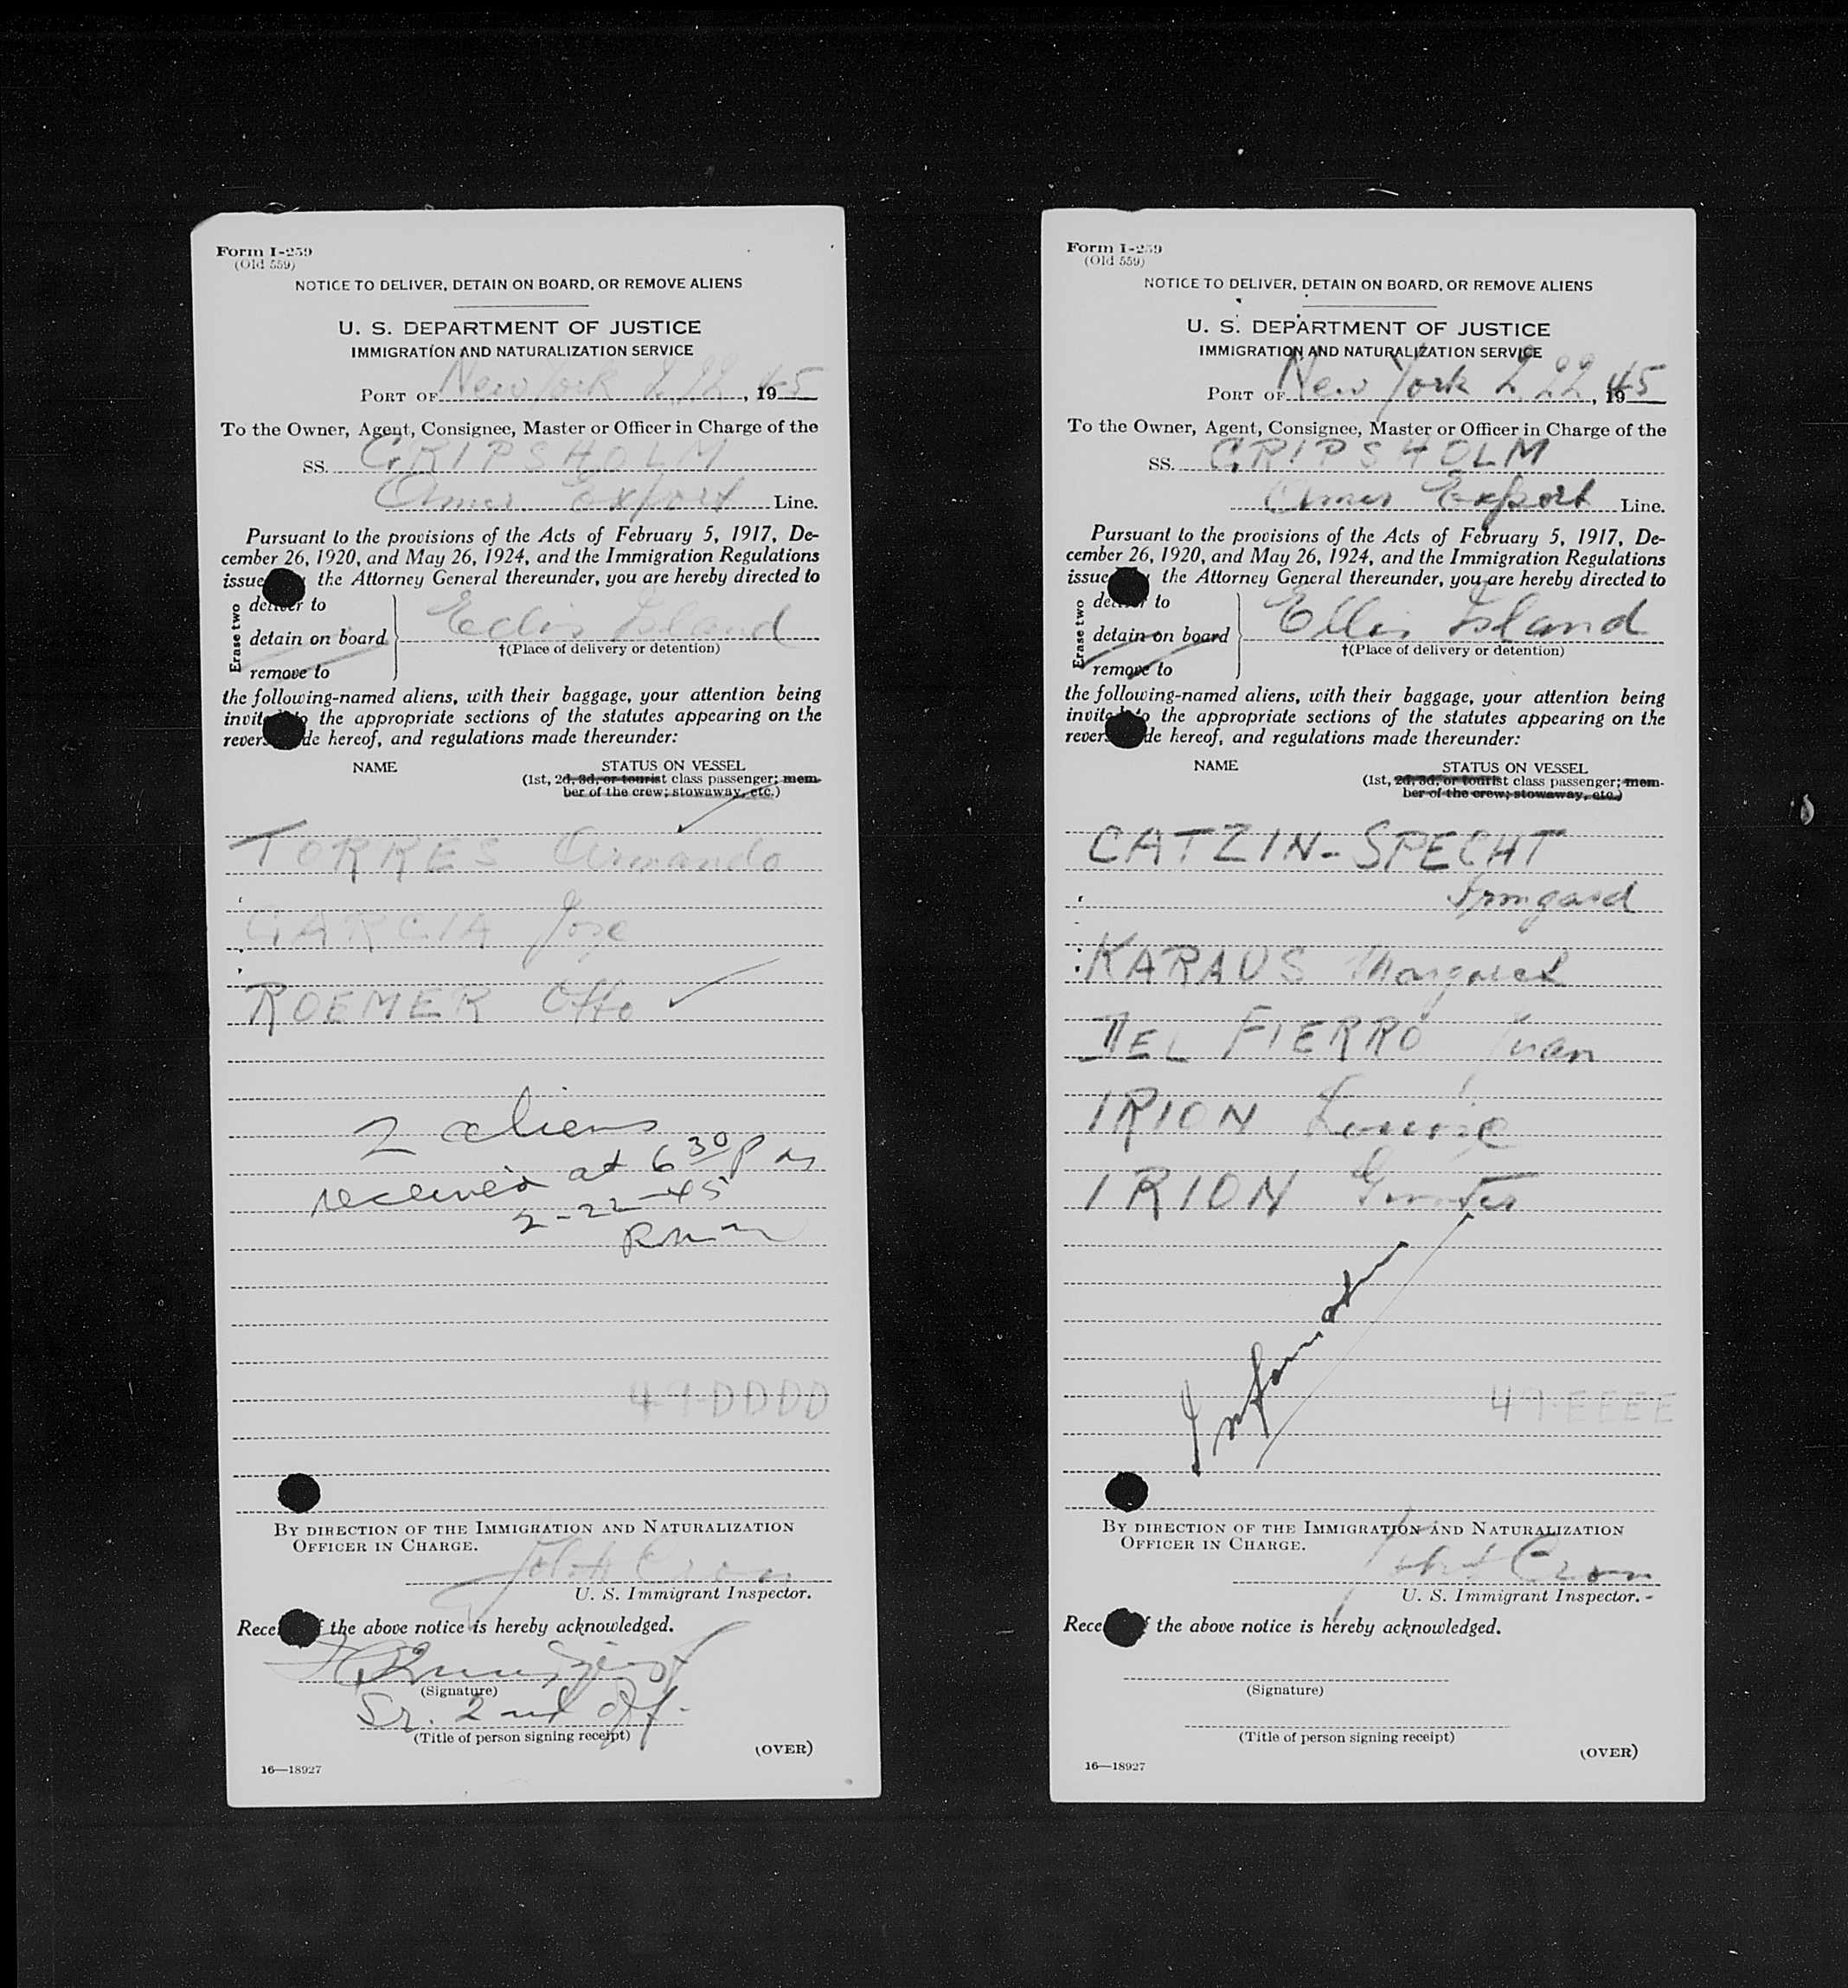 Form I-259
(Old 559)
NOTICE TO DELIVER, DETAIN ON BOARD, OR REMOVE ALIENS
U. S. DEPARTMENT OF JUSTICE
IMMIGRATION AND NATURALIZATION SERVICE
PORT OF New York 2.22, 1945
To the Owner, Agent, Consignee, Master or Officer in Charge of the
SS. GRIPSHOLM
Amer. Export Line.
Pursuant to the provisions of the Acts of February 5, 1917, De-
cember 26, 1920, and May 26, 1924, and the Immigration Regulations
issue the Attorney General thereunder, you are hereby directed to
Erase two
deliver to
detain on board
remove to
Ellis Island
†(Place of delivery or detention)
the following-named aliens, with their baggage, your attention being
invited to the appropriate sections of the statutes appearing on the
revers de hereof, and regulations made thereunder:
NAME STATUS ON VESSEL
(1st, 2d, 3d, or tourist class passenger; mem-
ber of the crew; stowaway, etc.)
TORRES Armando
GARCIA Jose
ROEMER Otto
2 aliens
received at 6 30 P m
2-22-45
49-DDDD
BY DIRECTION OF THE IMMIGRATION AND NATURALIZATION
OFFICER IN CHARGE.
U. S. Immigrant Inspector.
Rece f the above notice is hereby acknowledged.
(Signature)
Sr. 2nd Off.
(Title of person signing receipt)
(OVER)
16—18927
Form I-259
(Old 559)
NOTICE TO DELIVER, DETAIN ON BOARD, OR REMOVE ALIENS
U. S. DEPARTMENT OF JUSTICE
IMMIGRATION AND NATURALIZATION SERVICE
PORT OF New York 2.22, 1945
To the Owner, Agent, Consignee, Master or Officer in Charge of the
SS. GRIPSHOLM
Amer Export Line.
Pursuant to the provisions of the Acts of February 5, 1917, De-
cember 26, 1920, and May 26, 1924, and the Immigration Regulations
issue the Attorney General thereunder, you are hereby directed to
Erase two
deliver to
detain on board
remove to
Ellis Island
†(Place of delivery or detention)
the following-named aliens, with their baggage, your attention being
invited to the appropriate sections of the statutes appearing on the
revers de hereof, and regulations made thereunder:
NAME STATUS ON VESSEL
(1st, 2d, 3d, or tourist class passenger; mem-
ber of the crew; stowaway, etc.)
CATZIN-SPECHT
Irmgard
KARAUS Margaret
DEL FIERRO Juan
IRION Louise
IRION Gunter
Information
49-EEEE
BY DIRECTION OF THE IMMIGRATION AND NATURALIZATION
OFFICER IN CHARGE.
U. S. Immigrant Inspector.
Rece f the above notice is hereby acknowledged.
(Signature)
(Title of person signing receipt)
(OVER)
16—18927